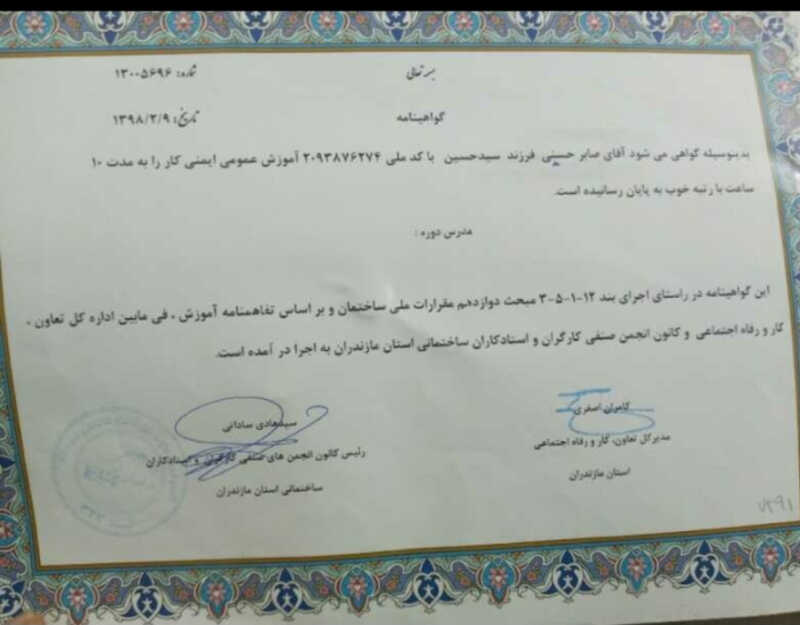 بسمه تعالی
شماره: ۱۳۰۰۵۶۹۶
گواهینامه
تاریخ: ۱۳۹۸/۲/۹
بدینوسیله گواهی می شود آقای صابر حسینی فرزند سیدحسین با کد ملی ۲۰۹۳۸۷۶۲۷۴ آموزش عمومی ایمنی کار را به مدت ۱۰
ساعت با رتبه خوب به پایان رسانیده است.
مدرس دوره :
این گواهینامه در راستای اجرای بند ۱۲-۱-۵-۳ مبحث دوازدهم مقرارات ملی ساختمان و بر اساس تفاهمنامه آموزش ، فی مابین اداره کل تعاون ،
کار و رفاه اجتماعی و کانون انجمن صنفی کارگران و استادکاران ساختمانی استان مازندران به اجرا در آمده است.
کامران اصغری
مدیرکل تعاون، کار و رفاه اجتماعی
استان مازندران
سیدهادی ساداتی
رئیس کانون انجمن های صنفی کارگران و استادکاران
ساختمانی استان مازندران
۷۲۹۱